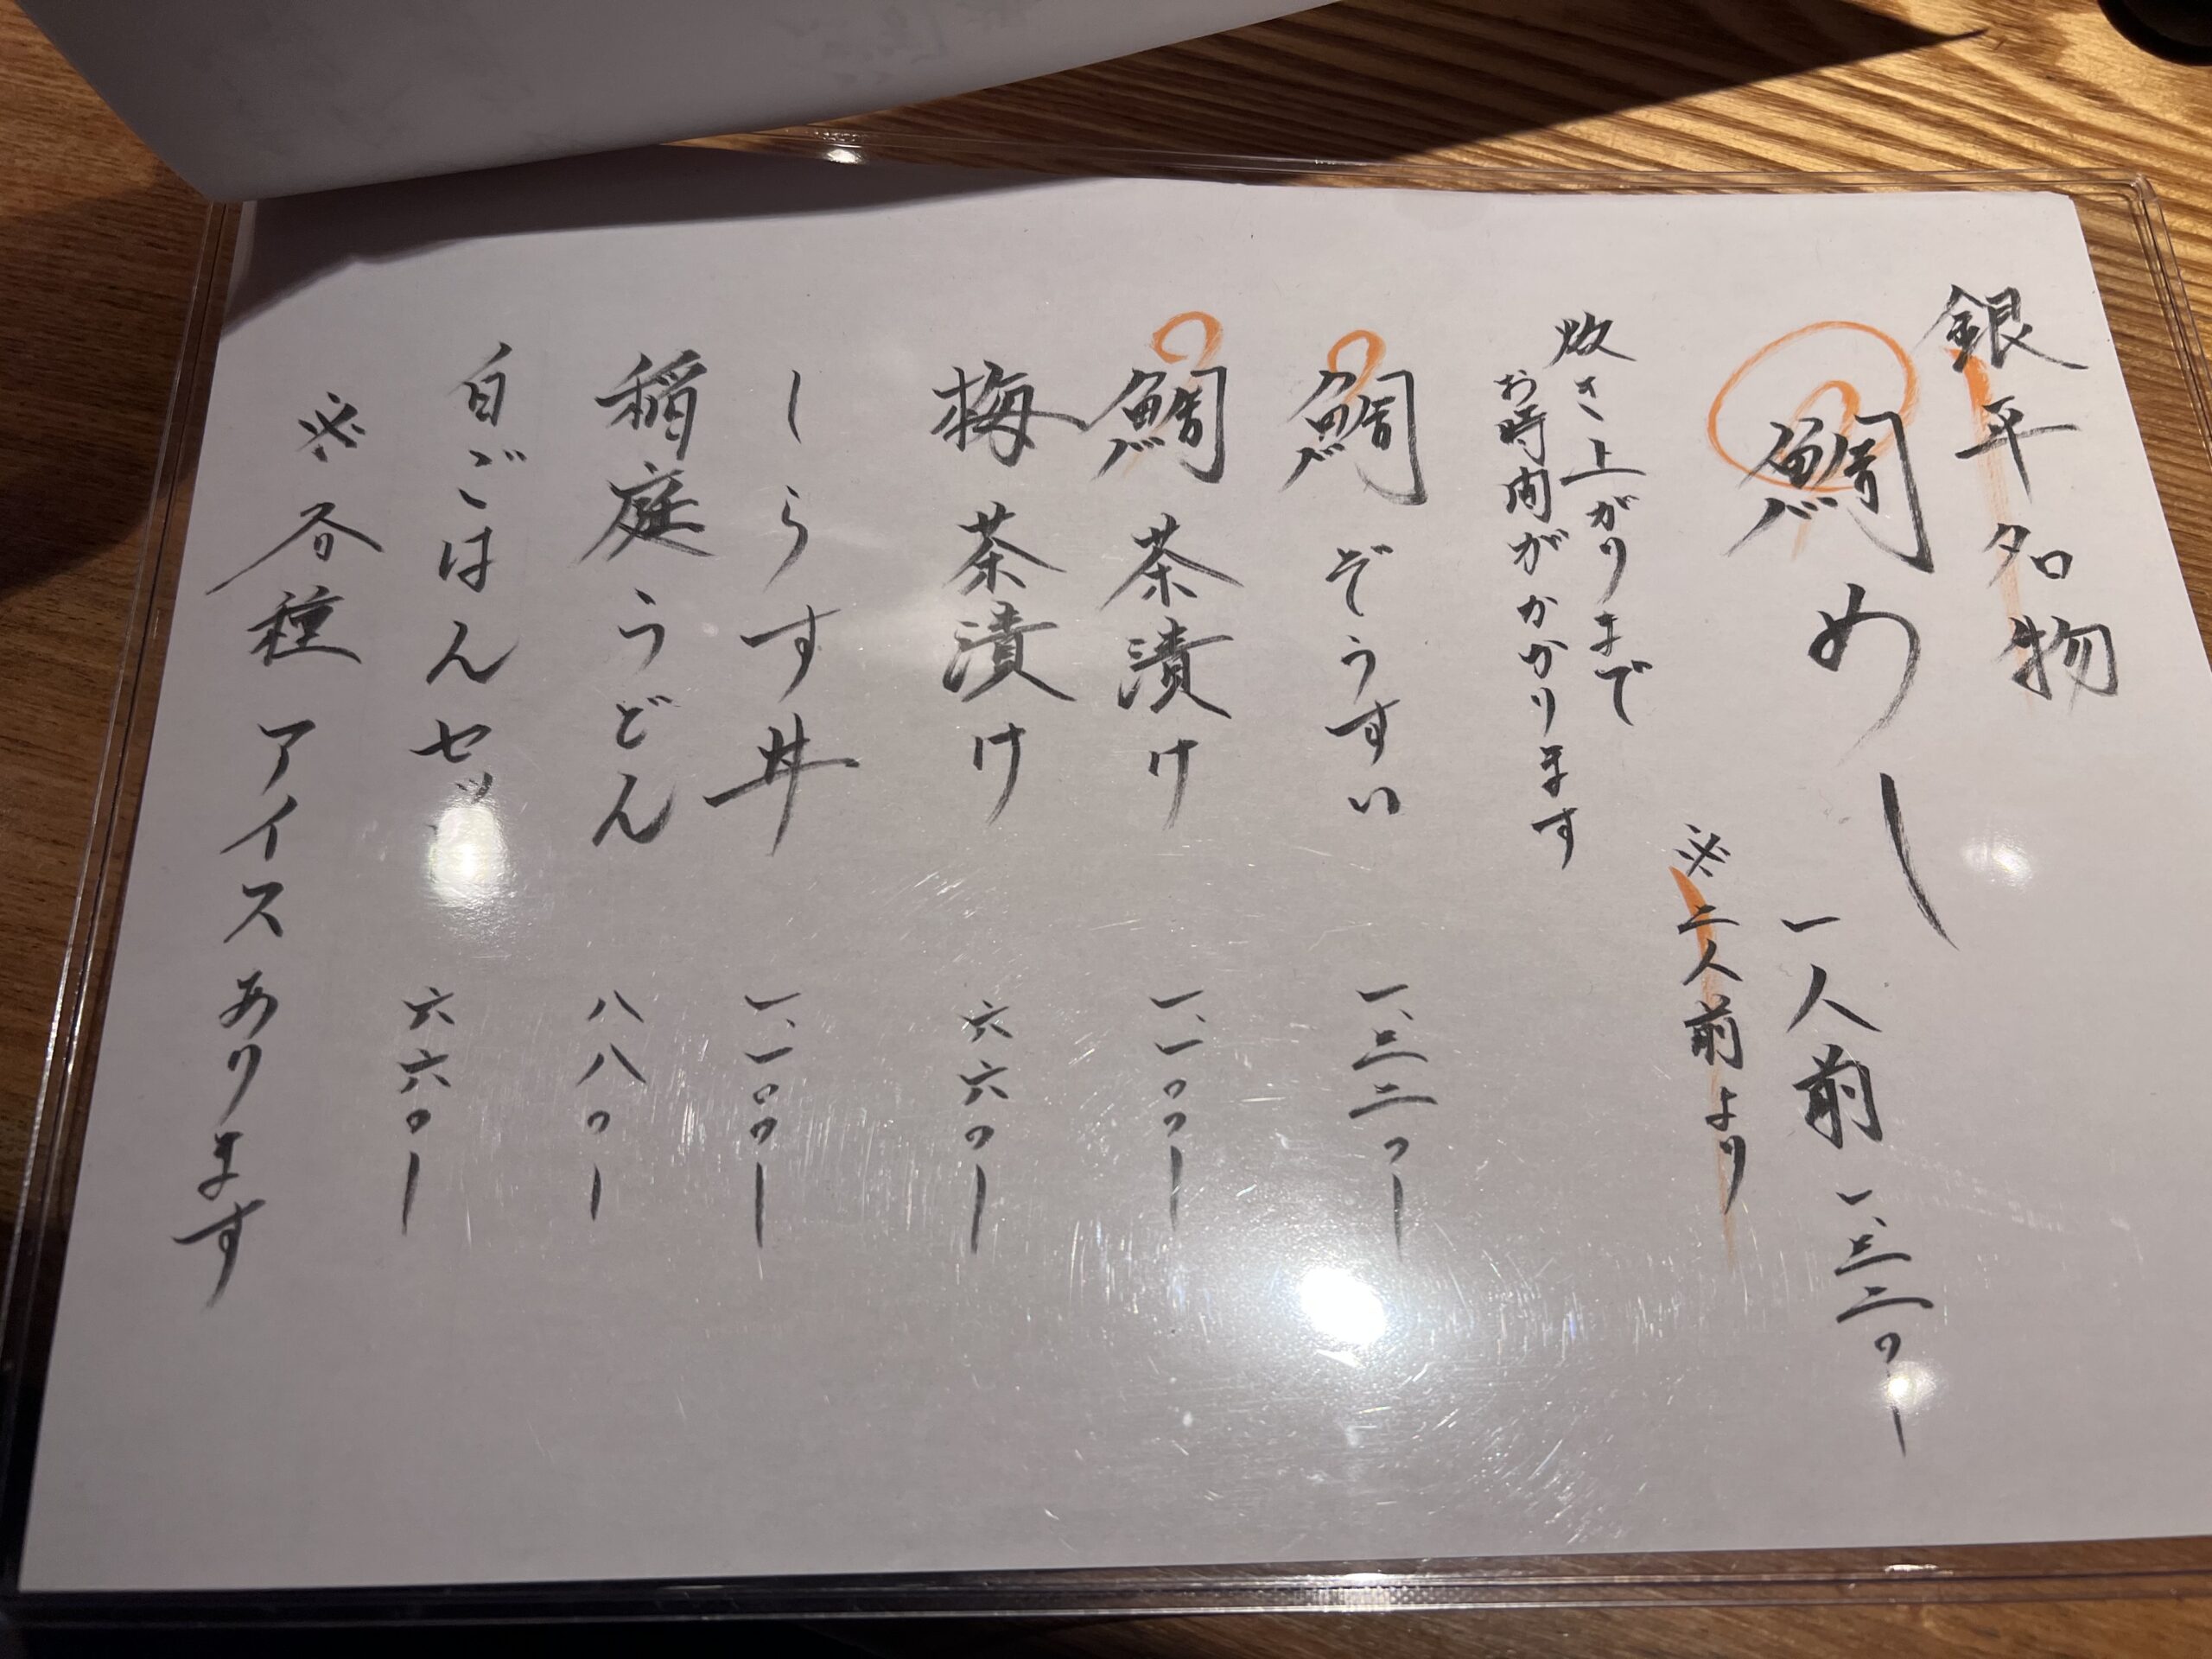 銀平名物
鯛めし
一人前 一、三二〇ー
※二人前より
炊き上がりまで
お時間がかかります
鯛ぞうすい 一、三二〇ー
鯛茶漬け 一、一〇〇ー
梅茶漬け 六六〇ー
しらす丼 一、一〇〇ー
稲庭うどん 八八〇ー
白ごはんセッ 六六〇ー
※各種アイスあります